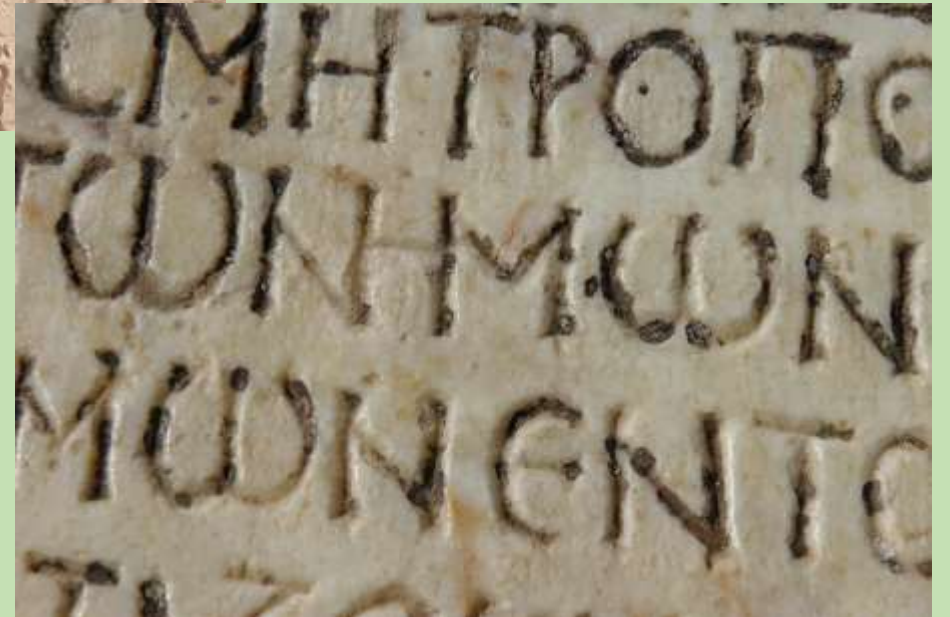 ϹΜΗΤΡΟΠΟ
ΤΩΝΗΜΩΝ
ΜΩΝΕΝΤΟ